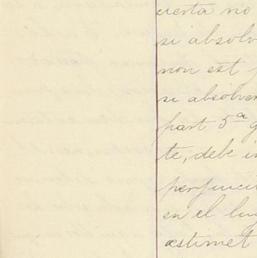 cierta no
si absolv
non est
si absolver
part 5ª g
te, debe in
perfuncu
en el lug
æstimet